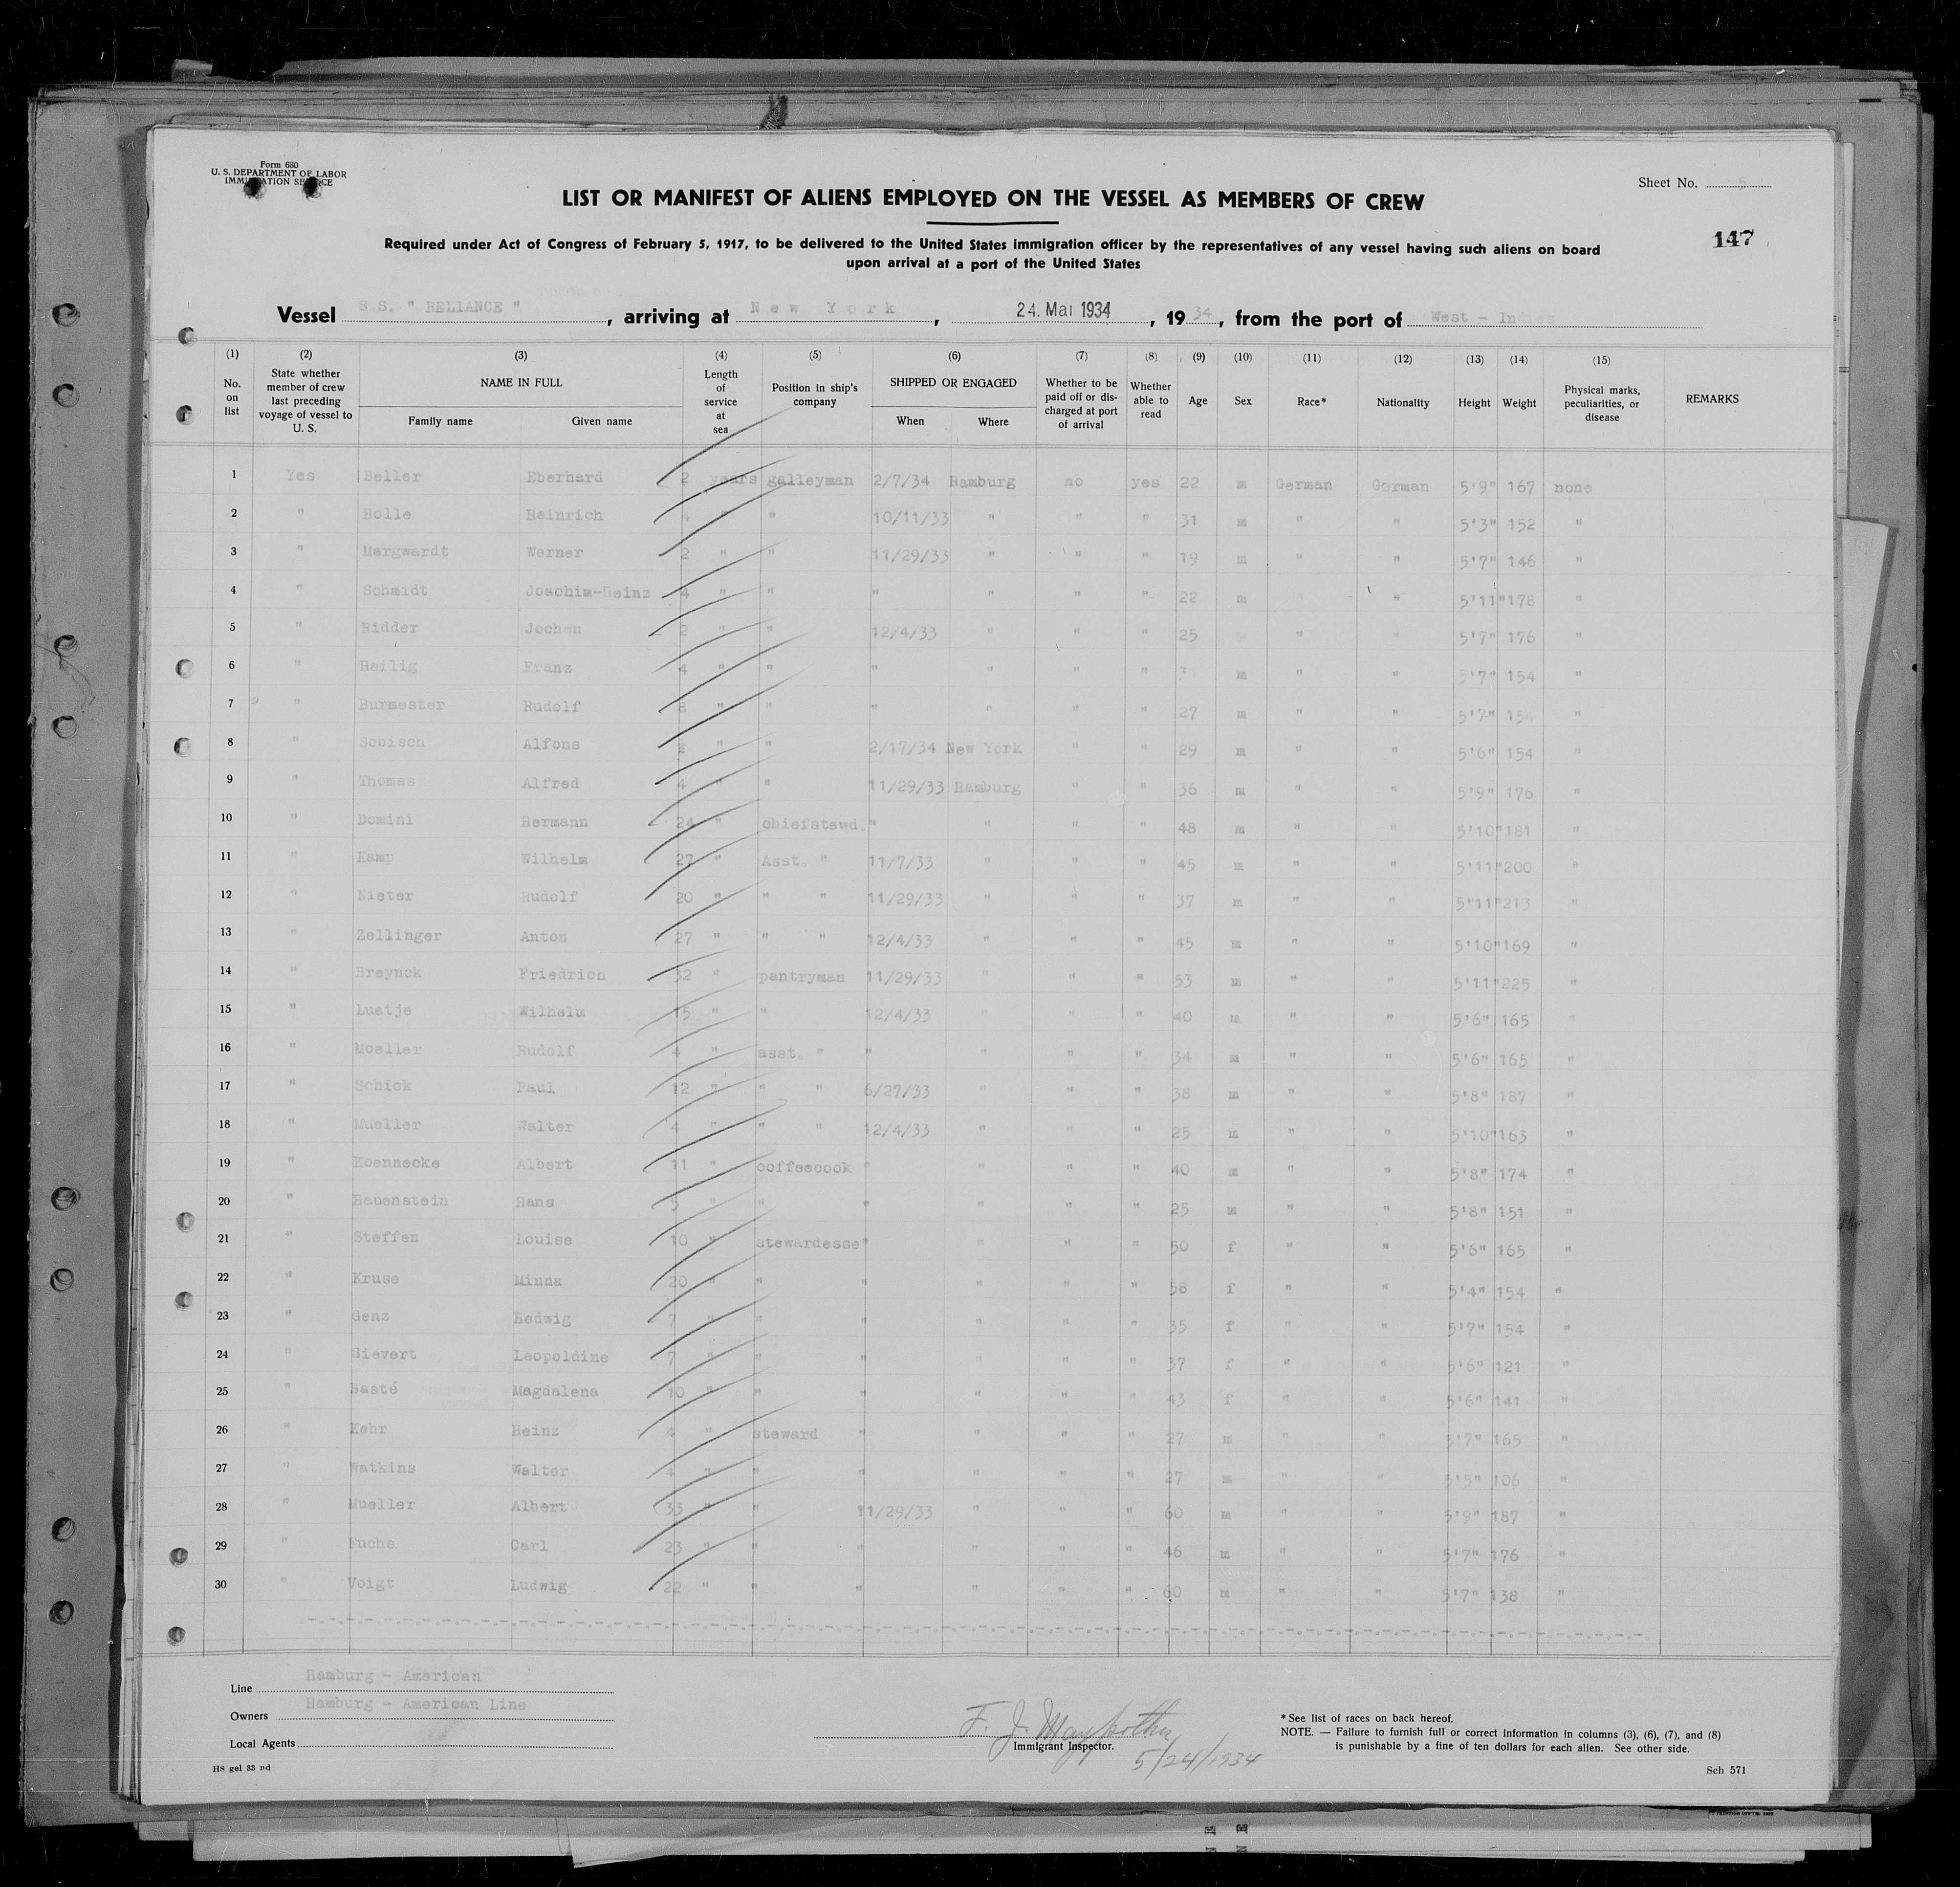 Form 680
U. S. DEPARTMENT OF LABOR
IMMIGRATION SERVICE
Sheet No. 5
LIST OR MANIFEST OF ALIENS EMPLOYED ON THE VESSEL AS MEMBERS OF CREW
147
Required under Act of Congress of February 5, 1917, to be delivered to the United States immigration officer by the representatives of any vessel having such aliens on board
upon arrival at a port of the United States
Vessel S.S. " RELIANCE " , arriving at New York , 24. Mai 1934 , 1934, from the port of West - Indies
(1) (2) (3) (4) (5) (6) (7) (8) (9) (10) (11) (12) (13) (14) (15)
No. on list State whether member of crew last preceding voyage of vessel to U. S. NAME IN FULL Length of service at sea Position in ship's company SHIPPED OR ENGAGED Whether to be paid off or discharged at port of arrival Whether able to read Age Sex Race* Nationality Height Weight Physical marks, peculiarities, or disease REMARKS
Family name Given name When Where
1 Yes Beller Eberhard 2 years galleyman 2/7/34 Hamburg no yes 22 m German German 5'9" 167 none
2 " Bolle Heinrich 4 " " 10/11/33 " " " 31 m " " 5'3" 152 "
3 " Margwardt Werner 2 " " 11/29/33 " " " 19 m " " 5'7" 146 "
4 " Schmidt Joachim-Heinz 4 " " " " " " 22 m " " 5'11" 178 "
5 " Ridder Jochen 2 " " 12/4/33 " " " 25 " " 5'7" 176 "
6 " Heilig Franz 4 " " " " " " m " " 5'7" 154 "
7 " Burmester Rudolf 8 " " " " " " 27 m " " 5'7" 154 "
8 " Sobisch Alfons " " 2/17/34 New York " " 29 m " " 5'6" 154 "
9 " Thomas Alfred 4 " " 11/29/33 Hamburg " " 36 m " " 5'9" 176 "
10 " Domini Hermann 24 " chiefstewd. " " " " 48 m " " 5'10" 181 "
11 " Kamp Wilhelm 27 " Asst. " 11/7/33 " " " 45 m " " 5'11" 200 "
12 " Nieter Rudolf 20 " " " 11/29/33 " " " 37 m " " 5"11" 213 "
13 " Zellinger Anton 27 " " " 12/4/33 " " " 45 m " " 5'10" 169 "
14 " Breynck Friedrich 32 " pantryman 11/29/33 " " " 53 m " " 5'11" 225 "
15 " Luetje Wilhelm 15 " " 12/4/33 " " 40 m " " 5'6" 165 "
16 " Moeller Rudolf 4 " asst. " " " " " 34 m " " 5'6" 165 "
17 " Schick Paul 12 " " " 6/27/33 " " " 38 m " " 5'8" 187 "
18 " Mueller Walter 4 " " " 12/4/33 " " " 25 m " " 5'10" 163 "
19 " Koennecke Albert 11 " coffeecook " " " " 40 m " " 5'8" 174 "
20 " Hauenstein Hans " " " " " " 25 m " " 5'8" 151 "
21 " Steffen Louise 10 " stewardesse " " " " 50 f " " 5'6" 165 "
22 " Kruse Minna 20 " " " " " " 58 f " " 5'4" 154 "
23 " Genz Hedwig 7 " " " " " " 35 f " " 5'7" 154 "
24 " Sievert Leopoldine 7 " " " " " " 37 f " " 5'6" 121 "
25 " Basté Magdalena 10 " " " " " " 43 f " " 5'6" 141 "
26 " Kehr Heinz 4 " steward " " " " 27 m " " 5'7" 165 "
27 " Watkins Walter 4 " " " " " " 27 m " " 5'5" 106 "
28 " Mueller Albert 33 " " 11/29/33 " " " 60 m " " 5'9" 187 "
29 " Fuchs Carl 23 " " " " " " 46 m " " 5'7" 176 "
30 " Voigt Ludwig 22 " " " " " " 60 m " " 5'7" 138 "
Line Hamburg - American
Owners Hamburg - American Line
Local Agents
F. J.
Immigrant Inspector.
5/24/1934
* See list of races on back hereof.
NOTE. — Failure to furnish full or correct information in columns (3), (6), (7), and (8)
is punishable by a fine of ten dollars for each alien. See other side.
HS gel 33 nd
Sch 571